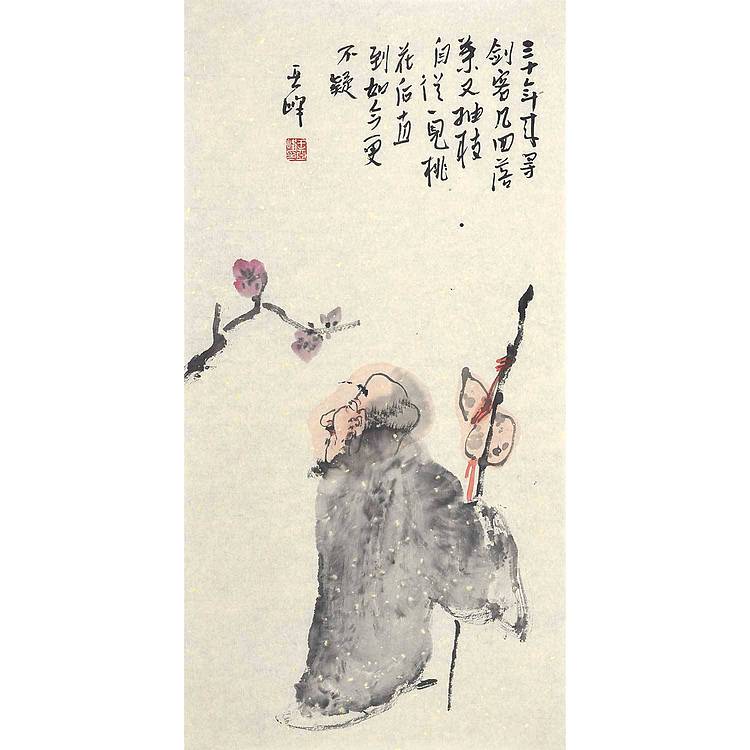 三十年来寻
剑客几回落
葉又抽枝
自從一見桃
花后直
到如今更
不疑
亚峰